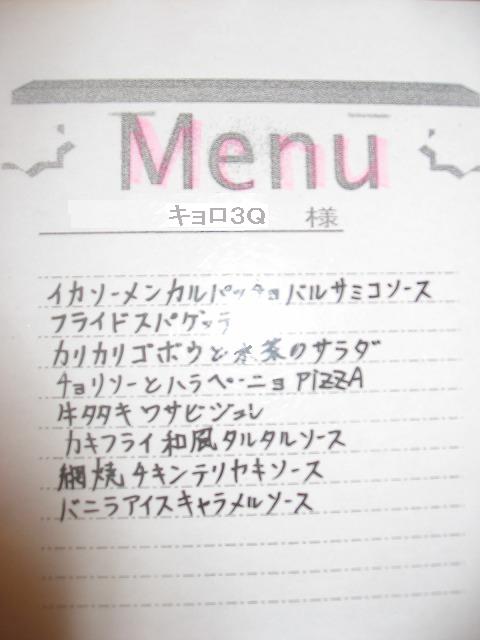 Menu
キョロ3Q 様
イカソーメンカルパッチョバルサミコソース
フライドスパゲッテ
カリカリゴボウと水菜のサラダ
チョリソーとハラペーニョPIZZA
牛タタキワサビジュレ
カキフライ和風タルタルソース
網焼チキンテリヤキソース
バニラアイスキャラメルソース